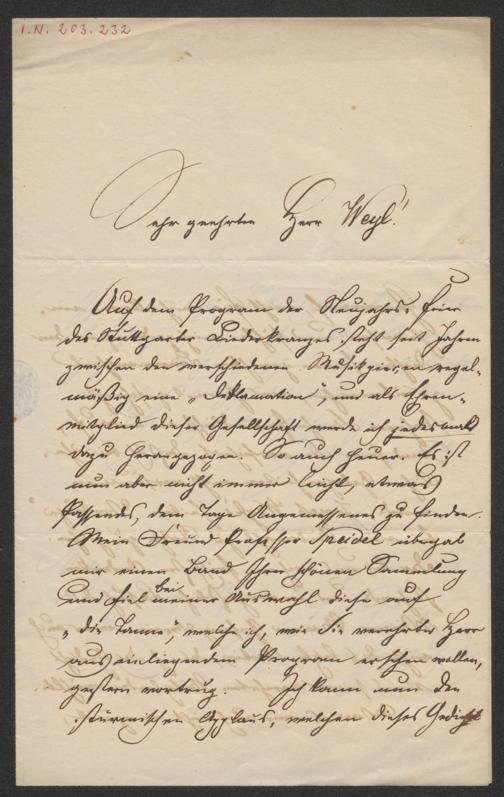 I.N. 203.232
Sehr geehrter Herr Weyl!
Auf dem Program der Neujahrs-Feier
des Stuttgarter Liederkranzes steht seit Jahren
zwischen den verschiedenen Musikpieçen regel-
mäßig eine „Deklamation“, und als Ehren-
mitglied dieser Gesellschaft werde ich jedesmal
dazu herangezogen. So auch heuer. Es ist
nun aber nicht immer leicht, etwas
Passendes, dem Tage Angemessenes zu finden.
Mein Freund Professor Speidel übergab
mir einen Band Ihrer schönen Sammlung
und fiel bei meiner Auswahl diese auf
„die Tanne“, welche ich, wie Sie verehrter Herr
aus einliegendem Program ersehen wollen,
gestern vortrug. Ich kann nun den
stürmischen Applaus, welchen dieses Gedicht